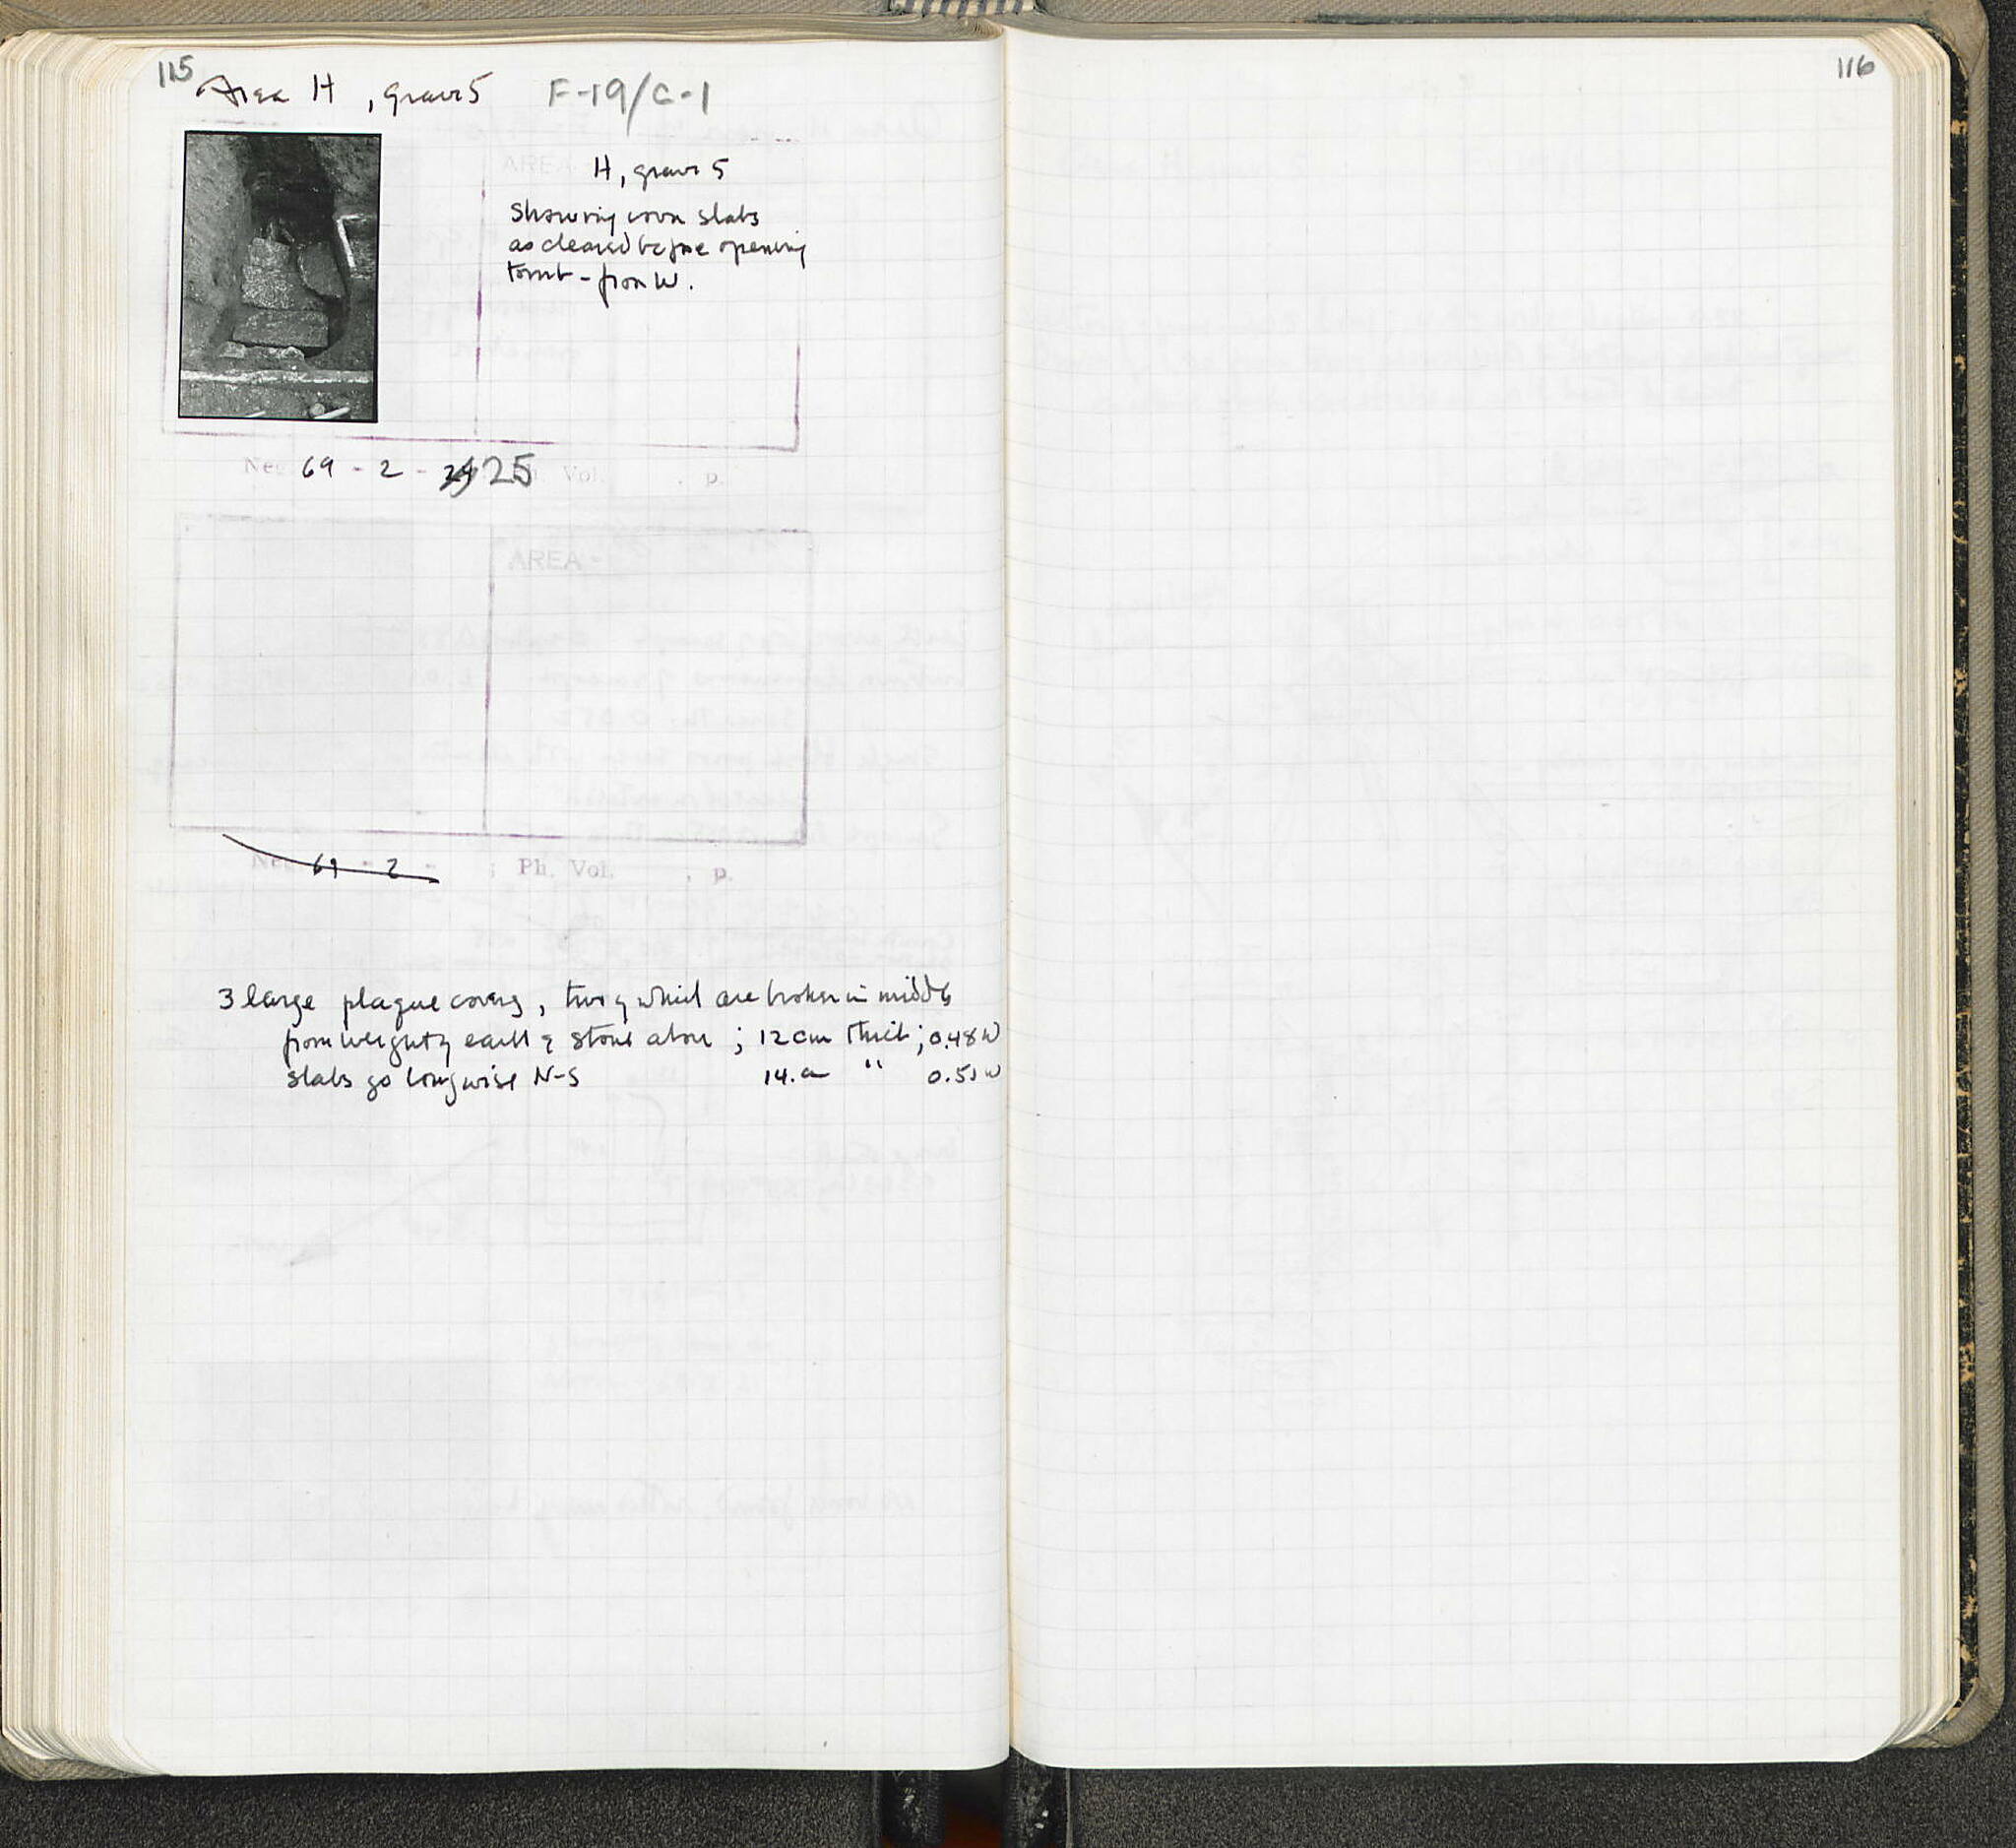 115
Area H, grave 5 F-19/G-1
AREA
H, grave 5
Showing cover slabs
as cleared before opening
tomb - from W.
Neg. 69 - 2 - 24 25 Vol. , p.
AREA -
Neg. 69 - 2 - ; Ph. Vol. , p.
3 large plaque covers, two of which are broken in middle
from weight of earth & stone above ; 12 cm thick ; 0.48 W
slabs go longwise N-S 14. cm " 0.51 W
116